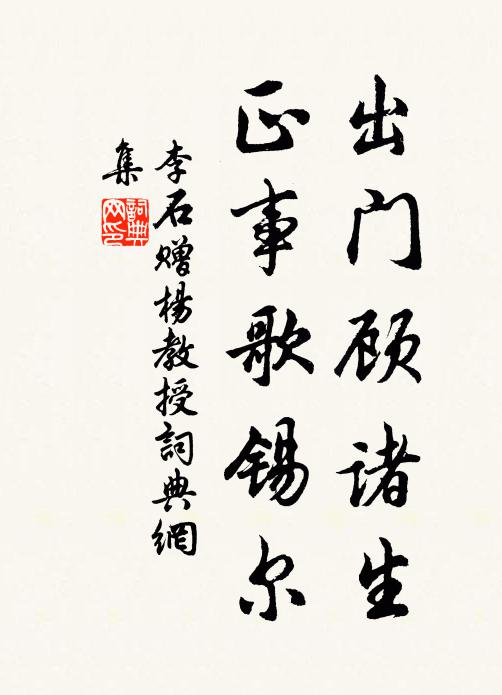 出门顾诸生
正事歌锡尔
李石赠杨教授詞典網
集
詞典网印